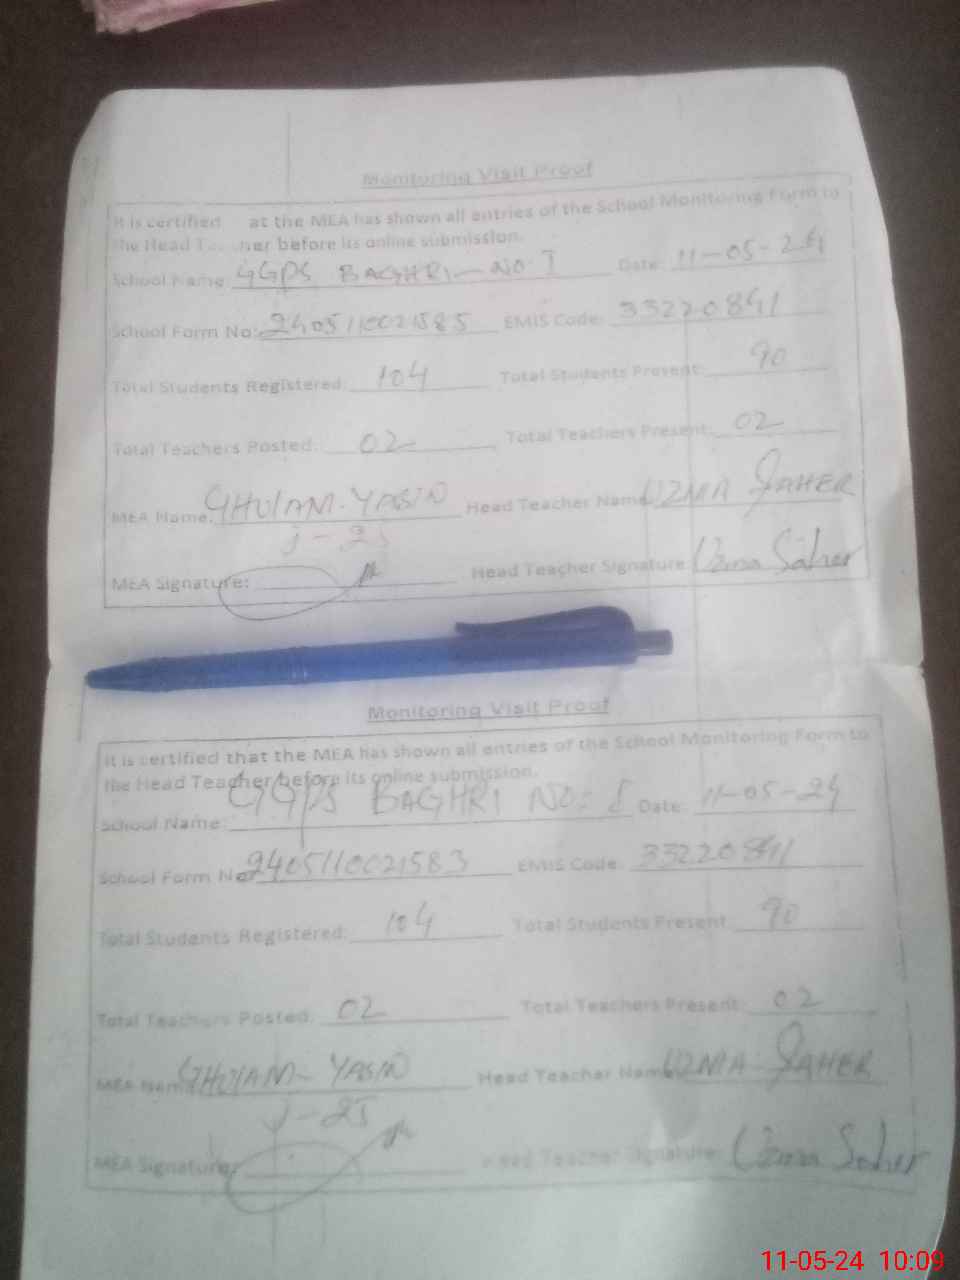 Monitoring Visit Proof
It is certified at the MEA has shown all entries of the School Monitoring Form to
the Head T...ner before its online submission.
School Name: GGPS BAGHRI-NO I Date: 11-05-24
School Form No: 2405110021585 EMIS Code: 33220841
Total Students Registered: 104 Total Students Present: 90
Total Teachers Posted: 02 Total Teachers Present: 02
MEA Name: GHULAM-YASIN Head Teacher Name UZMA SAHER
j-25
MEA Signature: Head Teacher Signature Uzma Saher
Monitoring Visit Proof
It is certified that the MEA has shown all entries of the School Monitoring Form to
the Head Teacher before its online submission.
School Name: GGPS BAGHRI NO: I Date: 11-05-24
School Form No 2405110021583 EMIS Code: 33220841
Total Students Registered: 104 Total Students Present: 90
Total Teachers Posted: 02 Total Teachers Present: 02
MEA Name GHULAM-YASIN Head Teacher Name UZMA SAHER
j-25
MEA Signature: Head Teacher Signature: Uzma Saher
11-05-24 10:09